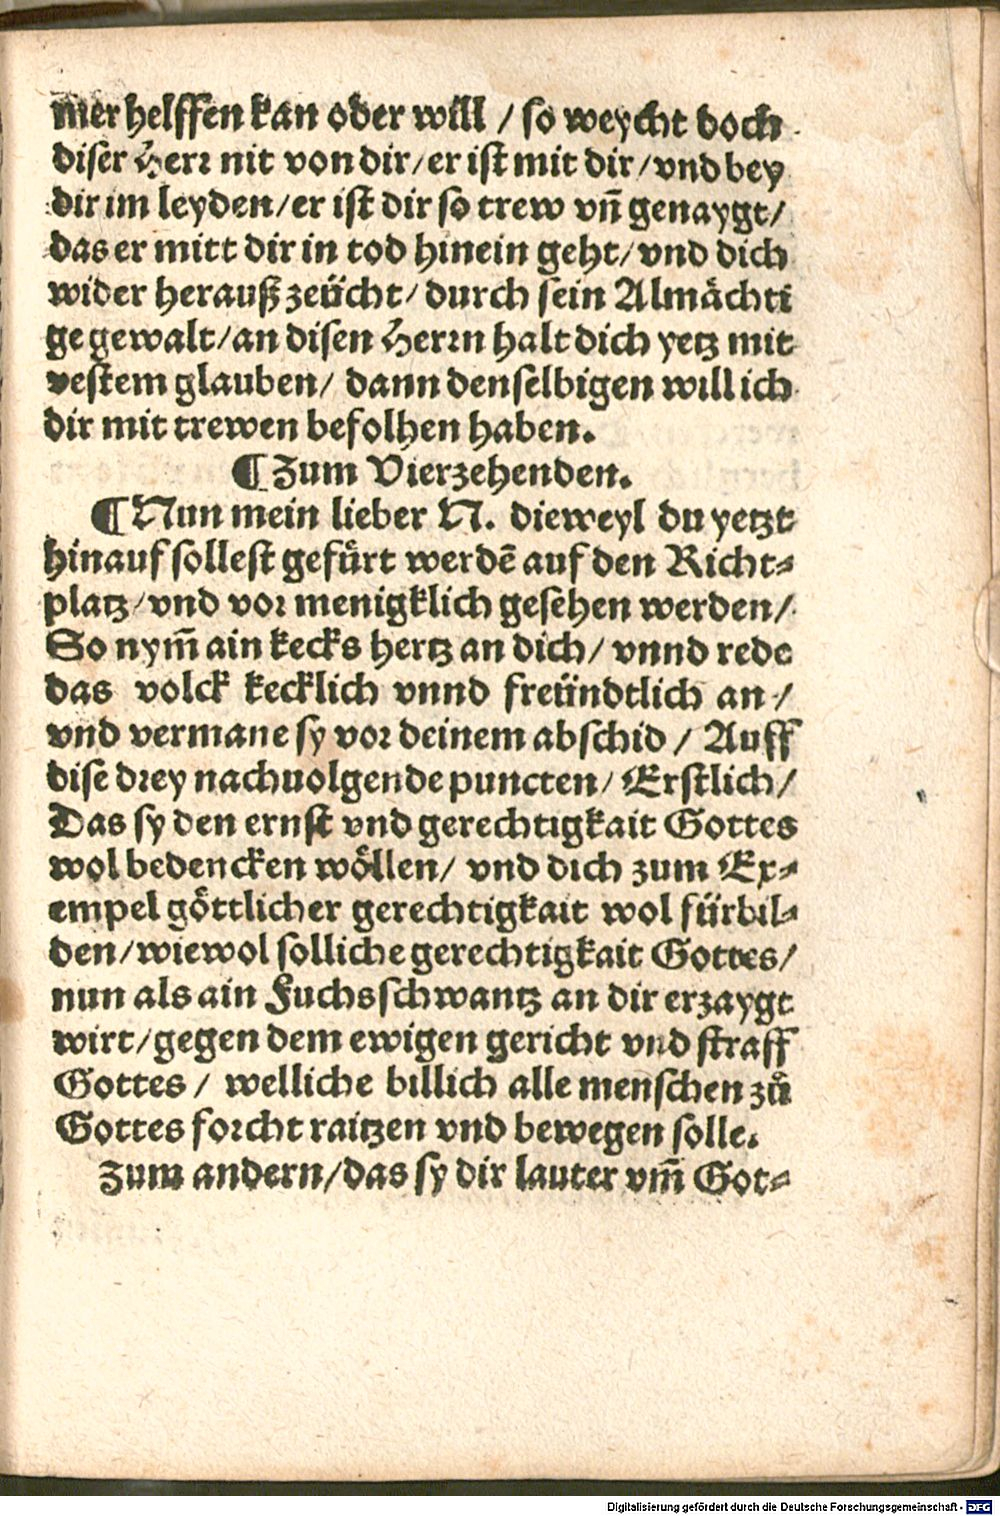 mer helffen kan oder will / so weycht doch
diser Herr nit von dir / er ist mit dir / vnd bey
dir im leyden / er ist dir so trew vñ genaygt /
das er mitt dir in tod hinein geht / vnd dich
wider herauß zeücht / durch sein Almächti
ge gewalt / an disen Herrn halt dich yetz mit
vestem glauben / dann denselbigen will ich
dir mit trewen befolhen haben.
¶ Zum Vierzehenden.
¶ Nun mein lieber N. dieweyl du yetzt
hinauf sollest gefürt werdẽ auf den Richt⸗
platz / vnd vor menigklich gesehen werden /
So nym̃ ain kecks hertz an dich / vnnd rede
das volck kecklich vnnd freündtlich an /
vnd vermane sy vor deinem abschid / Auff
dise drey nachuolgende puncten / Erstlich /
Das sy den ernst vnd gerechtigkait Gottes
wol bedencken wöllen / vnd dich zum Ex⸗
empel göttlicher gerechtigkait wol fürbil⸗
den / wiewol solliche gerechtigkait Gottes /
nun als ain Fuchsschwantz an dir erzaygt
wirt / gegen dem ewigen gericht vnd straff
Gottes / welliche billich alle menschen zů
Gottes forcht raitzen vnd bewegen solle.
Zum andern / das sy dir lauter vm̃ Got⸗
Digitalisierung gefördert durch die Deutsche Forschungsgemeinschaft - DFG